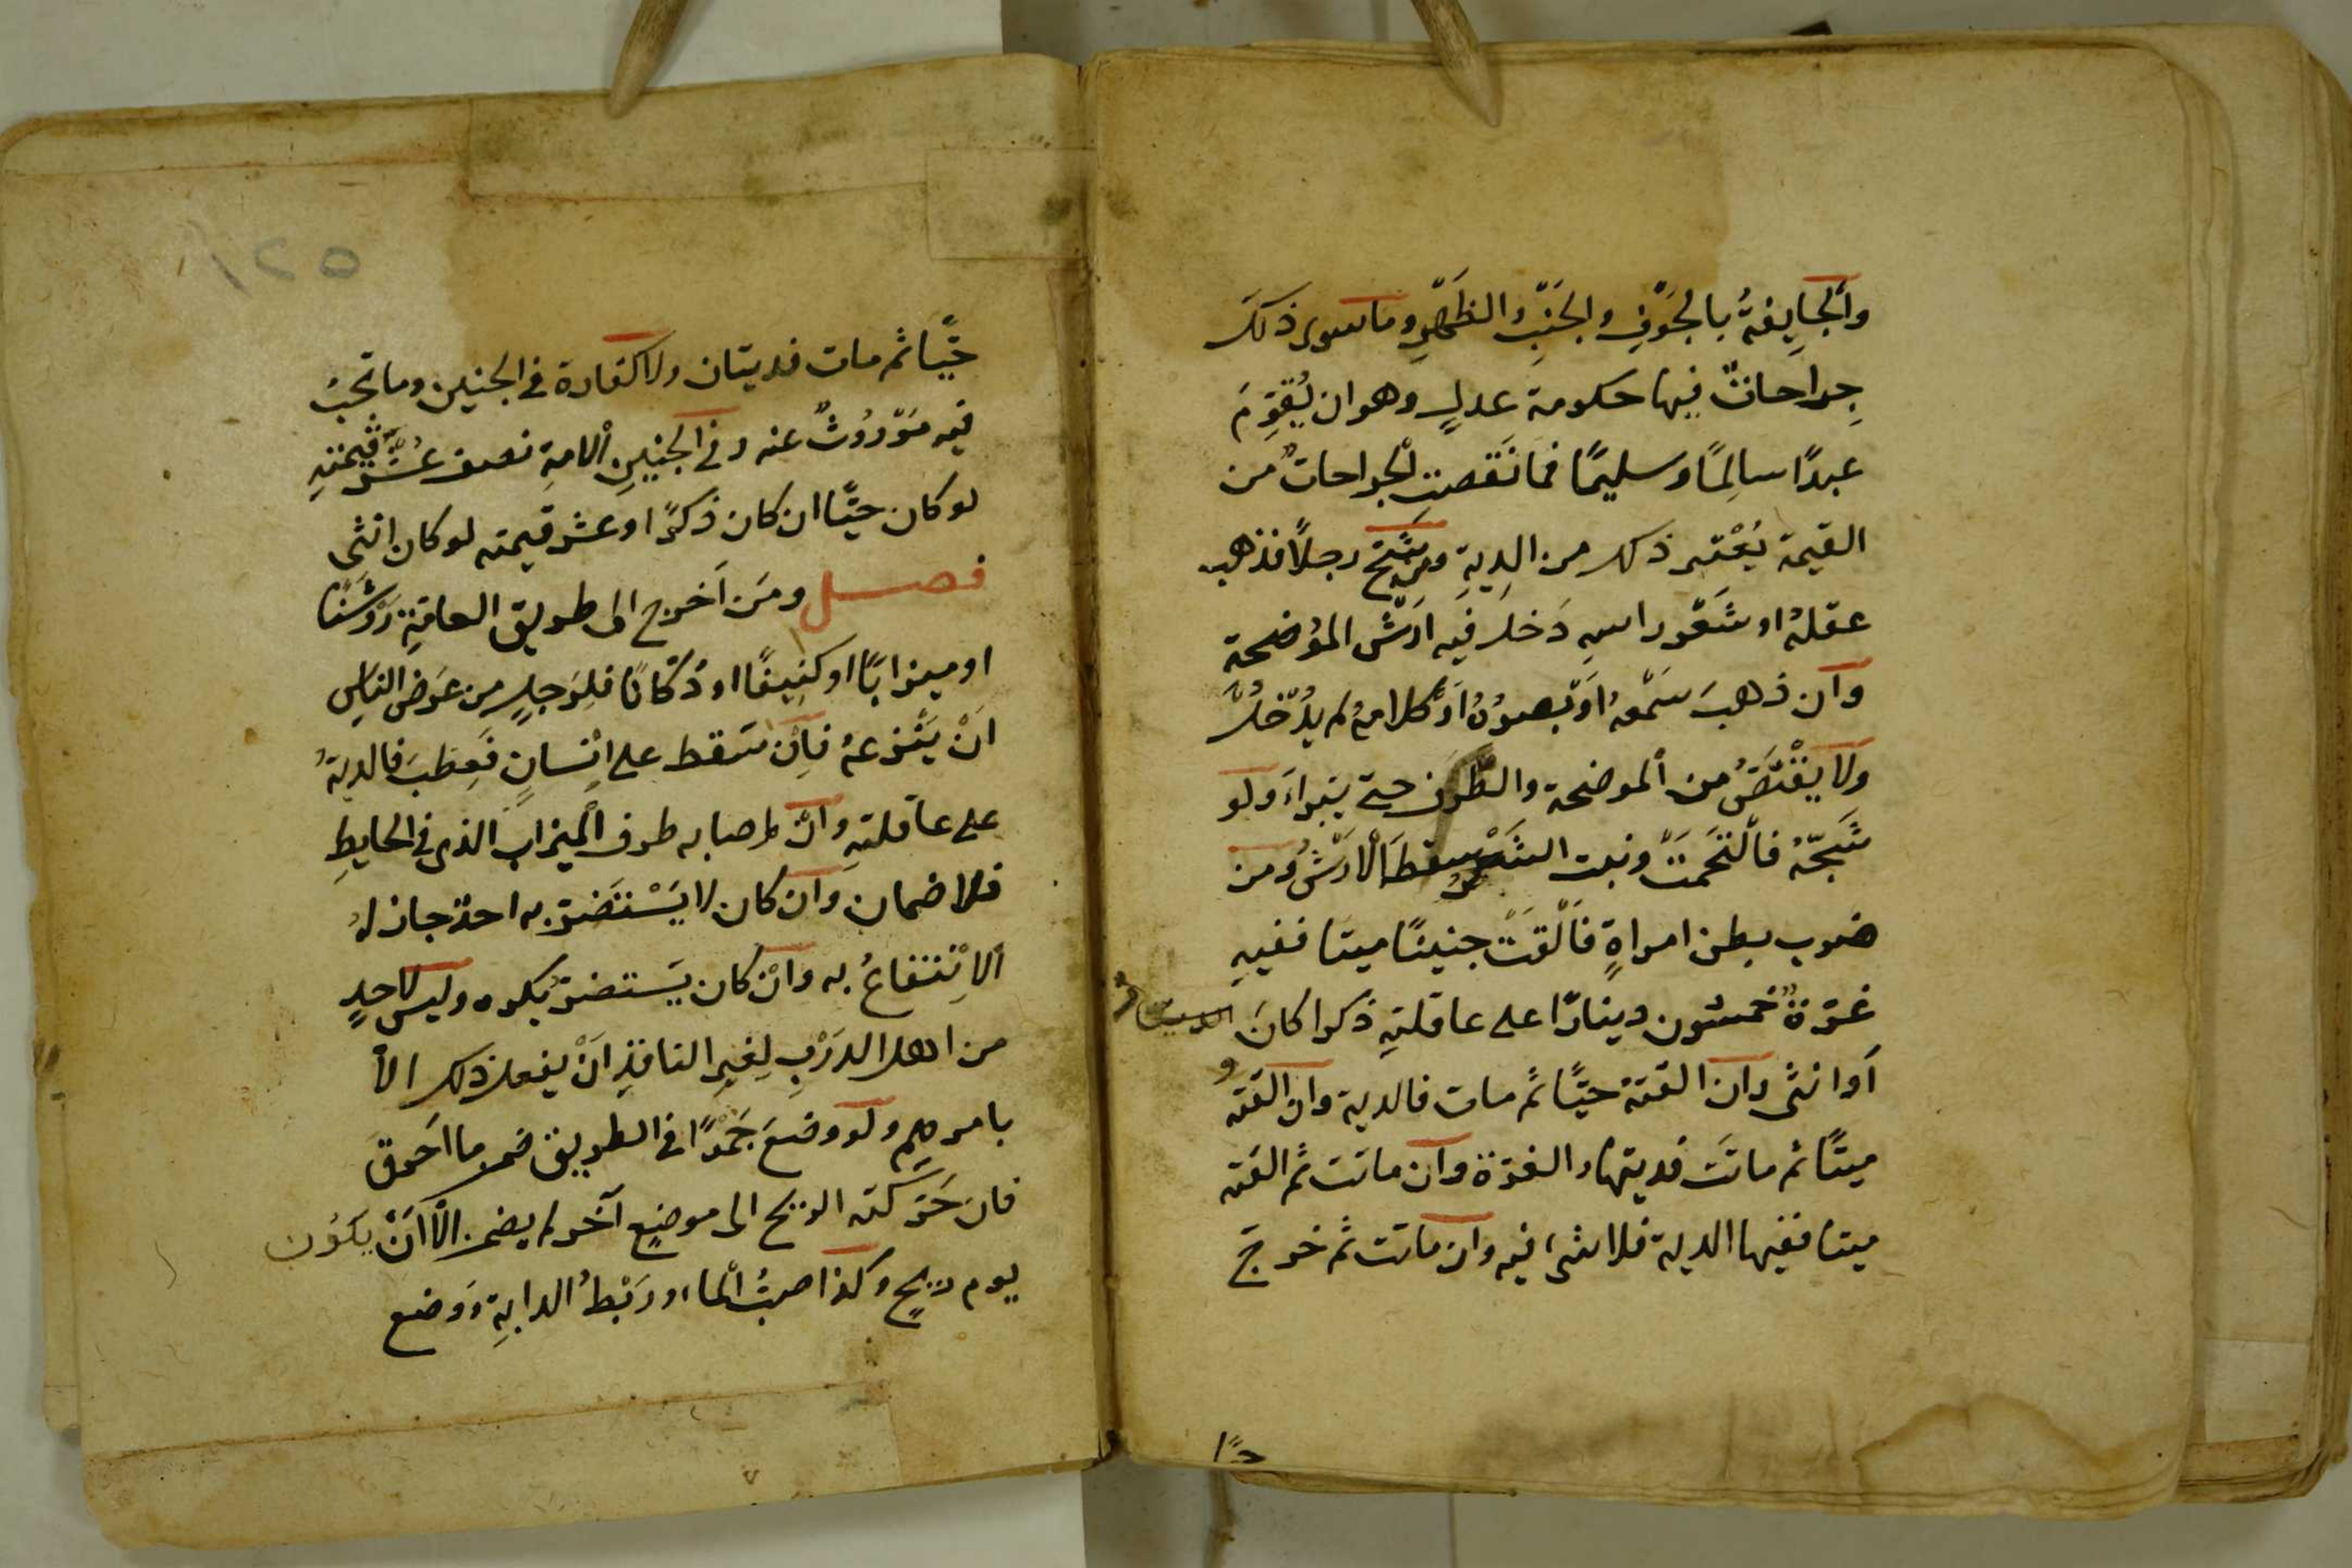 والجايفةُ بالجَوْفِ والجَنبِ والظَهْرِ وما سوى ذلكَ
جِراحاتٌ فيها حكومة عدلٍ وهو ان يُقوَّمَ
عبدًا سالِمًا وسليمًا فما نَقَصتِ الْجراحاتُ من
القيمة يُعْتبر ذلك من الدِيةِ ومن شَجَّ رجلًا فذهب
عقلهُ او شَعْر راسِهِ دَخل فيه ارَشْ المُوْضحة
وان ذهبَ سَمْعهُ اَوْ بصرُهُ اَوْ كلامهُ لم يدْخلُ
ولا يقْتَصُّ من الموضحة والطرف حتى يَبراءَ ولو
شَجّهُ فالْتَحَمَتْ ونبت الشَعْرُ سقطَ الْاَرَشُ ومن
ضرب بطن امراةٍ فاَلْقَتْ جنينًا ميتا ففيهِ
غرّة خمسون دينارًا على عاقلتِهِ ذكرا كانَ
اَو انثى وان القتهُ حيًّا ثم مات فالدية وان القَتْه
ميتًا ثم ماتَت فديتها والغرّة وان ماتت ثم القَته
ميتا ففيها الدية فلا شى فيه وان ماتت ثم خرجَ
حيًّا
١٥٢
حَيًّا ثم مات فديتان ولا كفارة فى الجنين وما تجبُ
فيه مَوْرُوثٌ عنه وفى الْجنينِ الامةِ نصف عُشْرِ قيمتهِ
لو كان حيًّا ان كان ذكرًا او عشر قيمته لو كان انثى
فصل ومَن اَخرج الى طريق العامّةِ رَوْشنًا
او ميزابًا او كنِيفًا او دُكّانًا فلِرَجلٍ من عَرض الناسِ
اَنْ يَنْزعهُ فاِن سَقط على اِنْسانٍ فعَطبَ فالديةُ
على عاقلتهِ وانْ اصابه طرف الميزاب الذى فى الحايطِ
فلا ضمان وان كان لا يَسْتضَرّ به احدٌ جاز لهُ
الاِنْتفاعُ به وانْ كان يَستضرّ يكره وليس لاحدٍ
من اهل الدَرْبِ لِغيرِ النافذِ اَنْ يفعل ذلك الاّ
بامرهم ولو وضعَ جَمْرًا فى الطريق ضمن ما احَرق
فان حَرّكته الريح الى موضعٍ آخر لم يضمن الّا اَنْ يكوُن
يوم ريحٍ وكذا صبُّ الماء ورَبْطُ الدابةِ ووضع